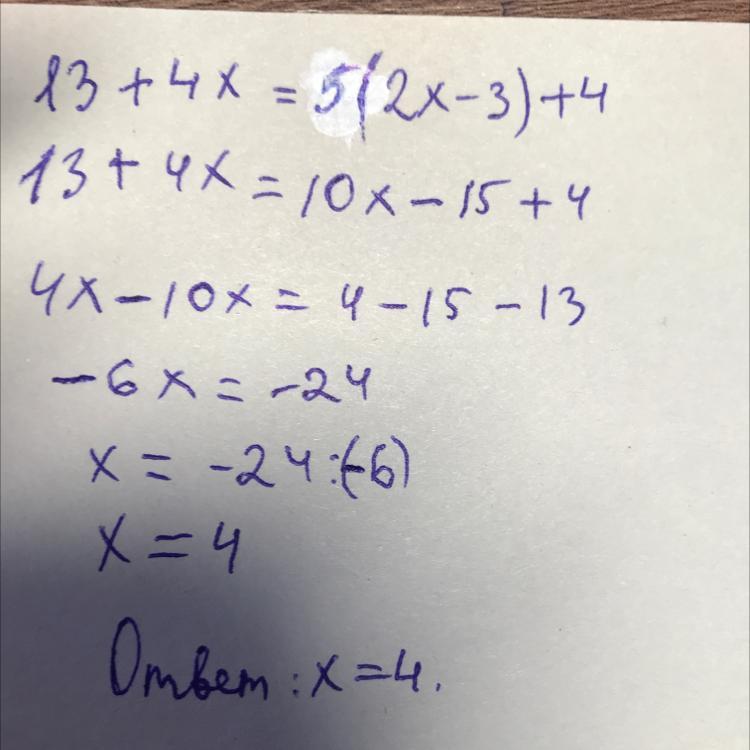 13 + 4x = 5(2x - 3) + 4
13 + 4x = 10x - 15 + 4
4x - 10x = 4 - 15 - 13
-6x = -24
x = -24:(-6)
x = 4
Ответ: x = 4.